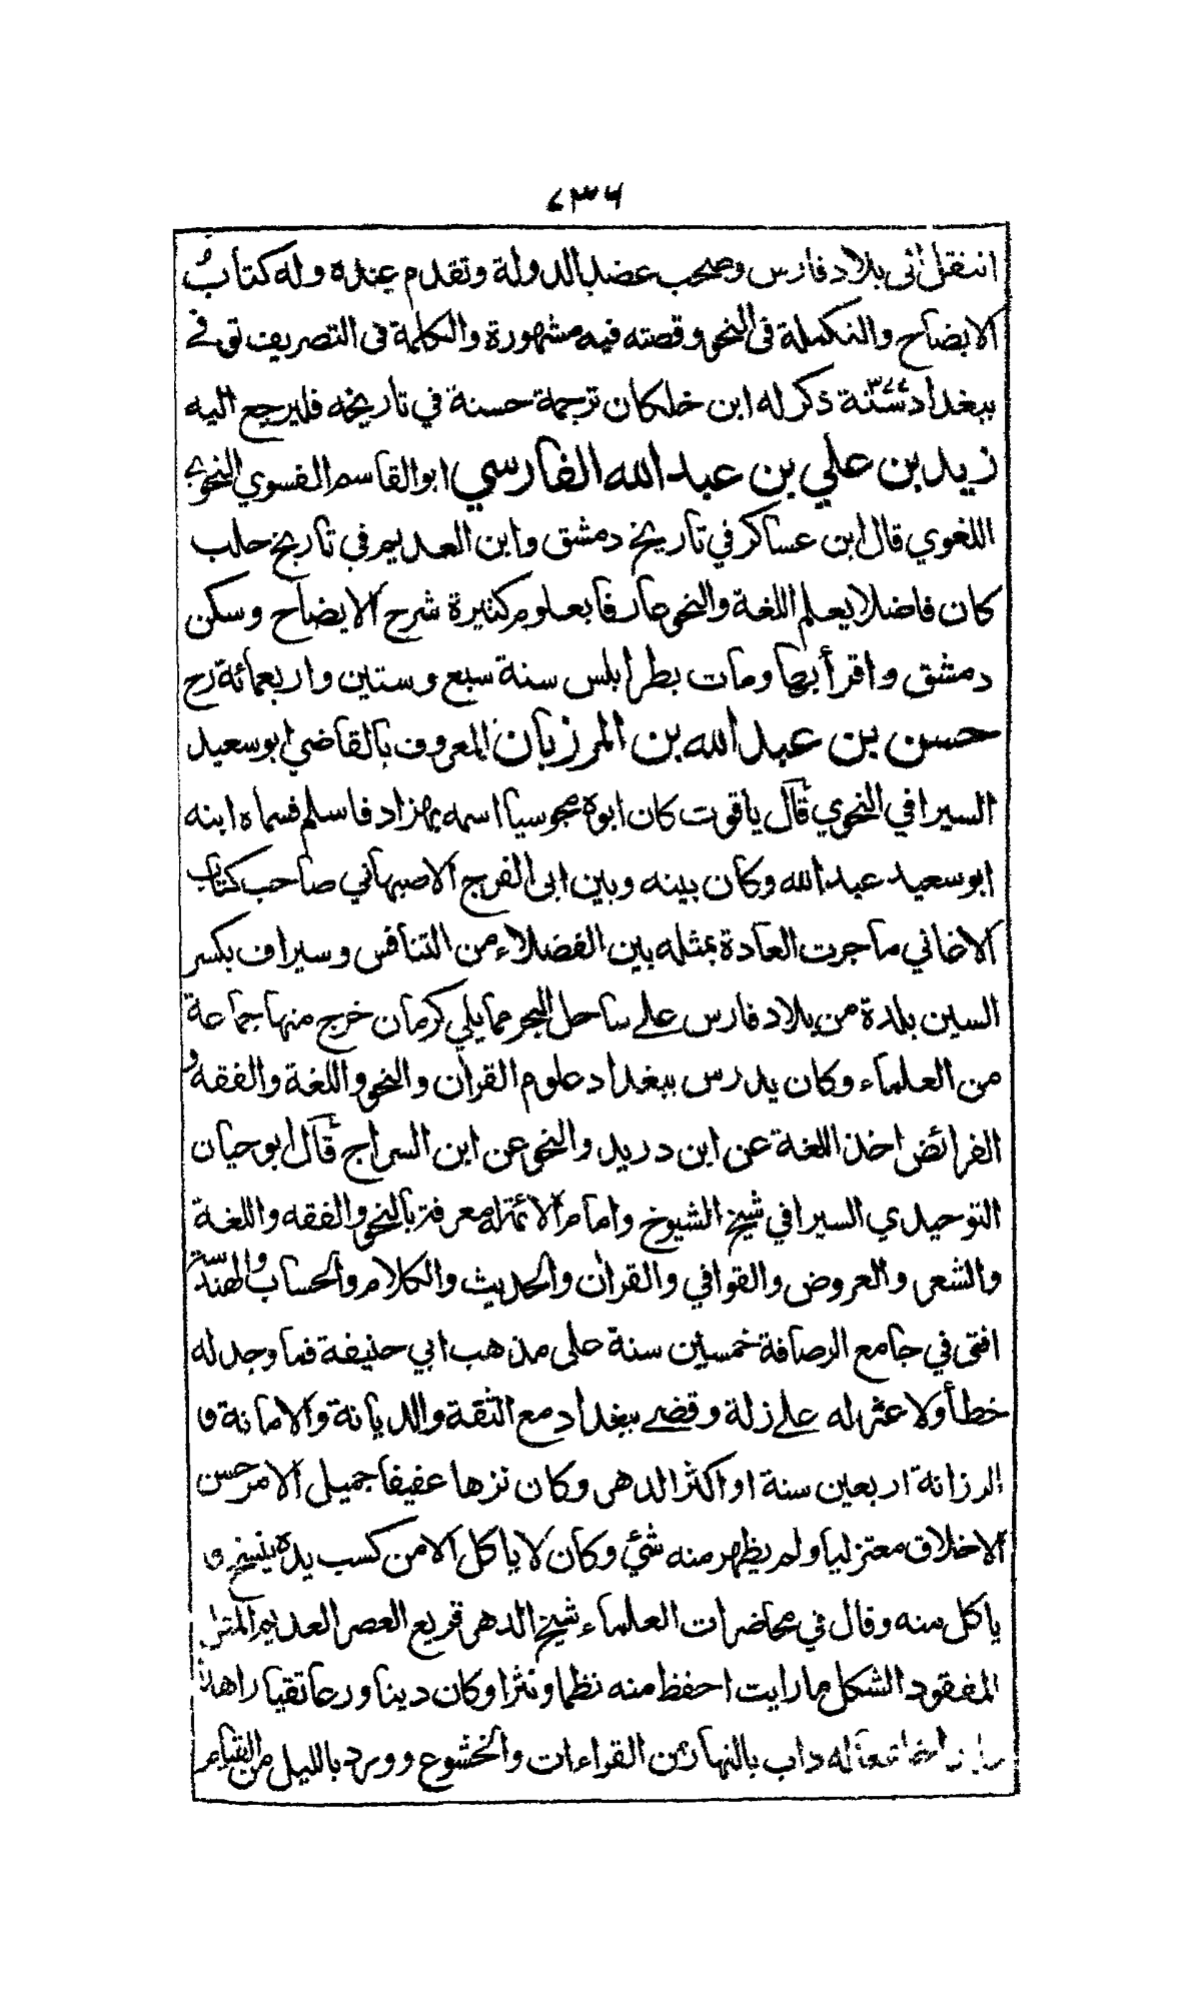 ٧٣٦
انتقل الى بلاد فارس وصحب عضد الدولة وتقدم عنده وله كتاب
الايضاح والتكملة فى النحو وقصته فيه مشهورة والكلمة فى التصريف توفے
ببغداد سنة ٣٧٧ ذكر له ابن خلكان ترجمة حسنة في تاريخه فليرجع اليه
زيد بن علي بن عبد الله الفارسي ابو القاسم الفسوي النحوي
اللغوي قال ابن عساكر في تاريخ دمشق وابن العديم في تاريخ حلب
كان فاضلا بعلم اللغة والنحو عارفا بعلوم كثيرة شرح الايضاح وسكن
دمشق واقرأ بها ومات بطرابلس سنة سبع وستين واربعمائة رح
حسن بن عبد الله بن المرزبان المعروف بالقاضي ابو سعيد
السيرافي النحوي قال ياقوت كان ابوه مجوسيا اسمه بهزاد فاسلم فسماه ابنه
ابو سعيد عبد الله وكان بينه وبين ابى الفرج الاصبهاني صاحب كتاب
الاغاني ما جرت العادة بمثله بين الفضلاء من التنافس وسيراف بكسر
السين بلدة من بلاد فارس علے ساحل البحر مما يلي كرمان خرج منها جماعة
من العلماء وكان يدرس ببغداد علوم القران والنحو واللغة والفقه و
الفرائض اخذ اللغة عن ابن دريد والنحو عن ابن السراج قال ابو حيان
التوحيدي السيرافي شيخ الشيوخ وامام الائمة له معرفة بالنحو والفقه واللغة
والشعر والعروض والقوافي والقران والحديث والكلام والحساب والهندسة
افتى في جامع الرصافة خمسين سنة على مذهب ابي حنيفة فما وجد له
خطأ ولا عثر له علے زلة وقضے ببغداد مع الثقة والديانة والامانة و
الرزانة اربعين سنة او اكثر الدهر وكان نزها عفيفا جميل الامر حسن
الاخلاق معتزليا ولم يظهر منه شئ وكان لا ياكل الا من كسب يده ينسخ و
ياكل منه وقال في محاضرات العلماء شيخ الدهر قريع العصر العديم المثل
المفقود الشكل ما رايت احفظ منه نظما ونثرا وكان دينا ورعا تقيا زاهدا
خاشعا له داب بالنهار من القراءات والخشوع وورد بالليل من القيام